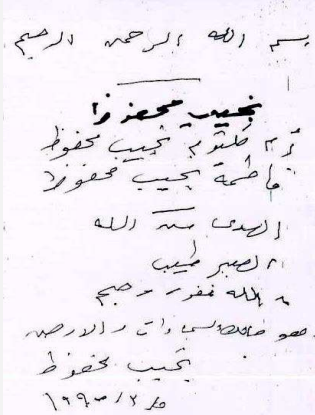 بسم الله الرحمن الرحيم
نجيب محفوظ
أم كلثوم نجيب محفوظ
فاطمة نجيب محفوظ
الهدى من الله
الصبر طيب
الله غفور رحيم
السماوات والارض
نجيب محفوظ